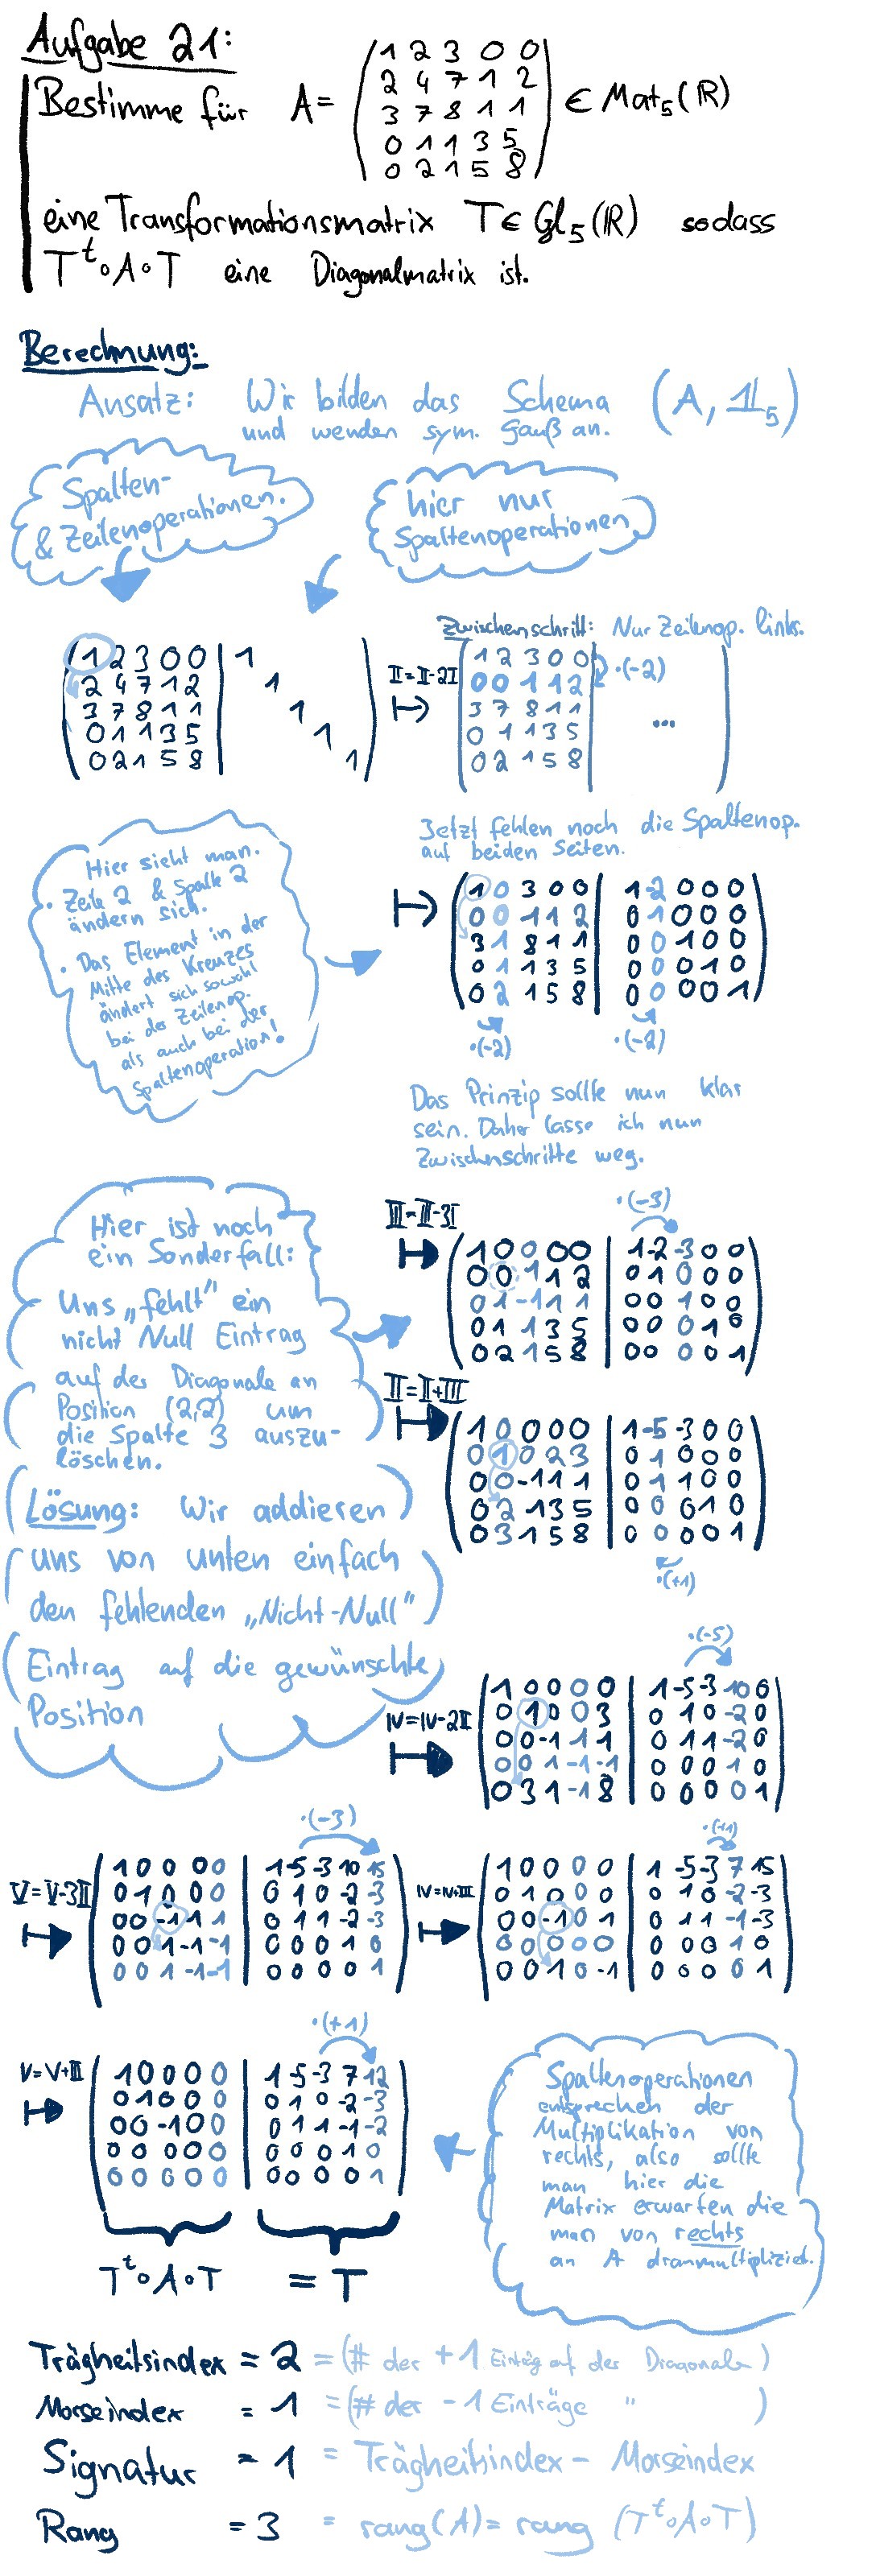 Aufgabe 21:
Bestimme für A= (1 2 3 0 0
2 4 7 1 2
3 7 8 1 1
0 1 1 3 5
0 2 1 5 8) ∈ Mat₅(ℝ)
eine Transformationsmatrix T∈ Gl₅(ℝ) sodass
Tᵗ∘A∘T eine Diagonalmatrix ist.
Berechnung:
Ansatz: Wir bilden das Schema (A, 𝟙₅)
und wenden sym. Gauß an.
Spalten-
& Zeilenoperationen.
hier nur
Spaltenoperationen
(1 2 3 0 0 | 1
2 4 7 1 2 | 1
3 7 8 1 1 | 1
0 1 1 3 5 | 1
0 2 1 5 8 | 1)
Zwischenschritt: Nur Zeilenop. links.
II=II-2I
↦
(1 2 3 0 0
0 0 1 1 2
3 7 8 1 1
0 1 1 3 5
0 2 1 5 8 | ... )
·(-2)
Jetzt fehlen noch die Spaltenop.
auf beiden Seiten.
Hier sieht man.
· Zeile 2 & Spalte 2
ändern sich.
· Das Element in der
Mitte des Kreuzes
ändert sich sowohl
bei der Zeilenop.
als auch bei der
Spaltenoperation!
↦
(1 0 3 0 0 | 1 -2 0 0 0
0 0 1 1 2 | 0 1 0 0 0
3 1 8 1 1 | 0 0 1 0 0
0 1 1 3 5 | 0 0 0 1 0
0 2 1 5 8 | 0 0 0 0 1)
·(-2) ·(-2)
Das Prinzip sollte nun klar
sein. Daher lasse ich nun
Zwischenschritte weg.
Hier ist noch
ein Sonderfall:
Uns „fehlt" ein
nicht Null Eintrag
auf der Diagonale an
Position (2,2) um
die Spalte 3 auszu-
löschen.
Lösung: Wir addieren
uns von unten einfach
den fehlenden „Nicht-Null"
Eintrag auf die gewünschte
Position
III=III-3I
↦
·(-3)
(1 0 0 0 0 | 1 -2 -3 0 0
0 0 1 1 2 | 0 1 0 0 0
0 1 -1 1 1 | 0 0 1 0 0
0 1 1 3 5 | 0 0 0 1 0
0 2 1 5 8 | 0 0 0 0 1)
II=II+III
↦
(1 0 0 0 0 | 1 -5 -3 0 0
0 1 0 2 3 | 0 1 0 0 0
0 0 -1 1 1 | 0 1 1 0 0
0 2 1 3 5 | 0 0 0 1 0
0 3 1 5 8 | 0 0 0 0 1)
·(+1)
IV=IV-2II
↦
·(-5)
(1 0 0 0 0 | 1 -5 -3 10 0
0 1 0 0 3 | 0 1 0 -2 0
0 0 -1 1 1 | 0 1 1 -2 0
0 0 1 -1 -1 | 0 0 0 1 0
0 3 1 -1 8 | 0 0 0 0 1)
V=V-3II
↦
·(-3)
(1 0 0 0 0 | 1 -5 -3 10 15
0 1 0 0 0 | 0 1 0 -2 -3
0 0 -1 1 1 | 0 1 1 -2 -3
0 0 1 -1 -1 | 0 0 0 1 0
0 0 1 -1 -1 | 0 0 0 0 1)
IV=IV+III
↦
·(+1)
(1 0 0 0 0 | 1 -5 -3 7 15
0 1 0 0 0 | 0 1 0 -2 -3
0 0 -1 0 1 | 0 1 1 -1 -3
0 0 0 0 0 | 0 0 0 1 0
0 0 1 0 -1 | 0 0 0 0 1)
V=V+III
↦
·(+1)
(1 0 0 0 0 | 1 -5 -3 7 12
0 1 0 0 0 | 0 1 0 -2 -3
0 0 -1 0 0 | 0 1 1 -1 -2
0 0 0 0 0 | 0 0 0 1 0
0 0 0 0 0 | 0 0 0 0 1)
Tᵗ∘A∘T = T
Spaltenoperationen
entsprechen der
Multiplikation von
rechts, also sollte
man hier die
Matrix erwarten die
man von rechts
an A dranmultipliziert.
Trägheitsindex = 2 = (# der +1 Einträg auf der Diagonale)
Morseindex = 1 = (# der -1 Einträge " )
Signatur = 1 = Trägheitsindex - Morseindex
Rang = 3 = rang(A) = rang (Tᵗ∘A∘T)